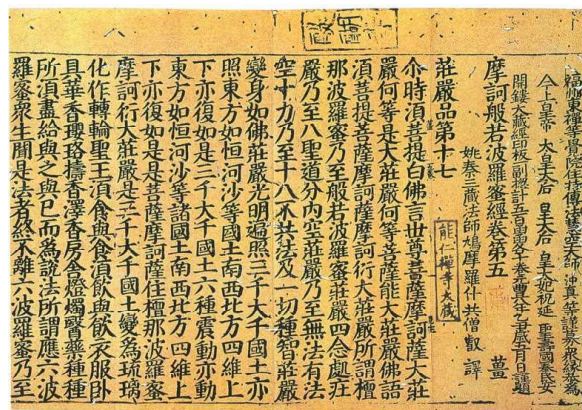 福州東禪等覺院住持傳法慧空大師沖真等謹募衆緣恭為
今上皇帝 太皇太后 皇太后 皇太妃祝延 聖壽國泰民安
開鏤大藏經印板一副計五百函元豐年五月日謹題
摩訶般若波羅蜜經卷第五 薑
姚秦三藏法師鳩摩羅什共僧叡 譯
能仁禪寺大藏
莊嚴品第十七
尒時須菩提白佛言世尊菩薩摩訶薩大莊
嚴何等是大莊嚴何等菩薩能大莊嚴佛語
須菩提菩薩摩訶薩摩訶衍大莊嚴所謂檀
那波羅蜜乃至般若波羅蜜莊嚴四念處莊
嚴乃至八聖道分內空莊嚴乃至無法有法
空十力乃至十八不共法及一切種智莊嚴
變身如佛莊嚴光明遍照三千大千國土亦
照東方如恒河沙等國土南西北方四維上
下亦復如是三千大千國土六種震動亦動
東方如恒河沙等諸國土南西北方四維上
下亦復如是是菩薩摩訶薩住檀那波羅蜜
摩訶衍大莊嚴是三千大千國土變為琉璃
化作轉輪聖王須食與食須飲與飲衣服臥
具華香瓔珞擣香澤香房舍燈燭醫藥種種
所須盡給與之與已而為說法所謂應六波
羅蜜衆生聞是法者終不離六波羅蜜乃至